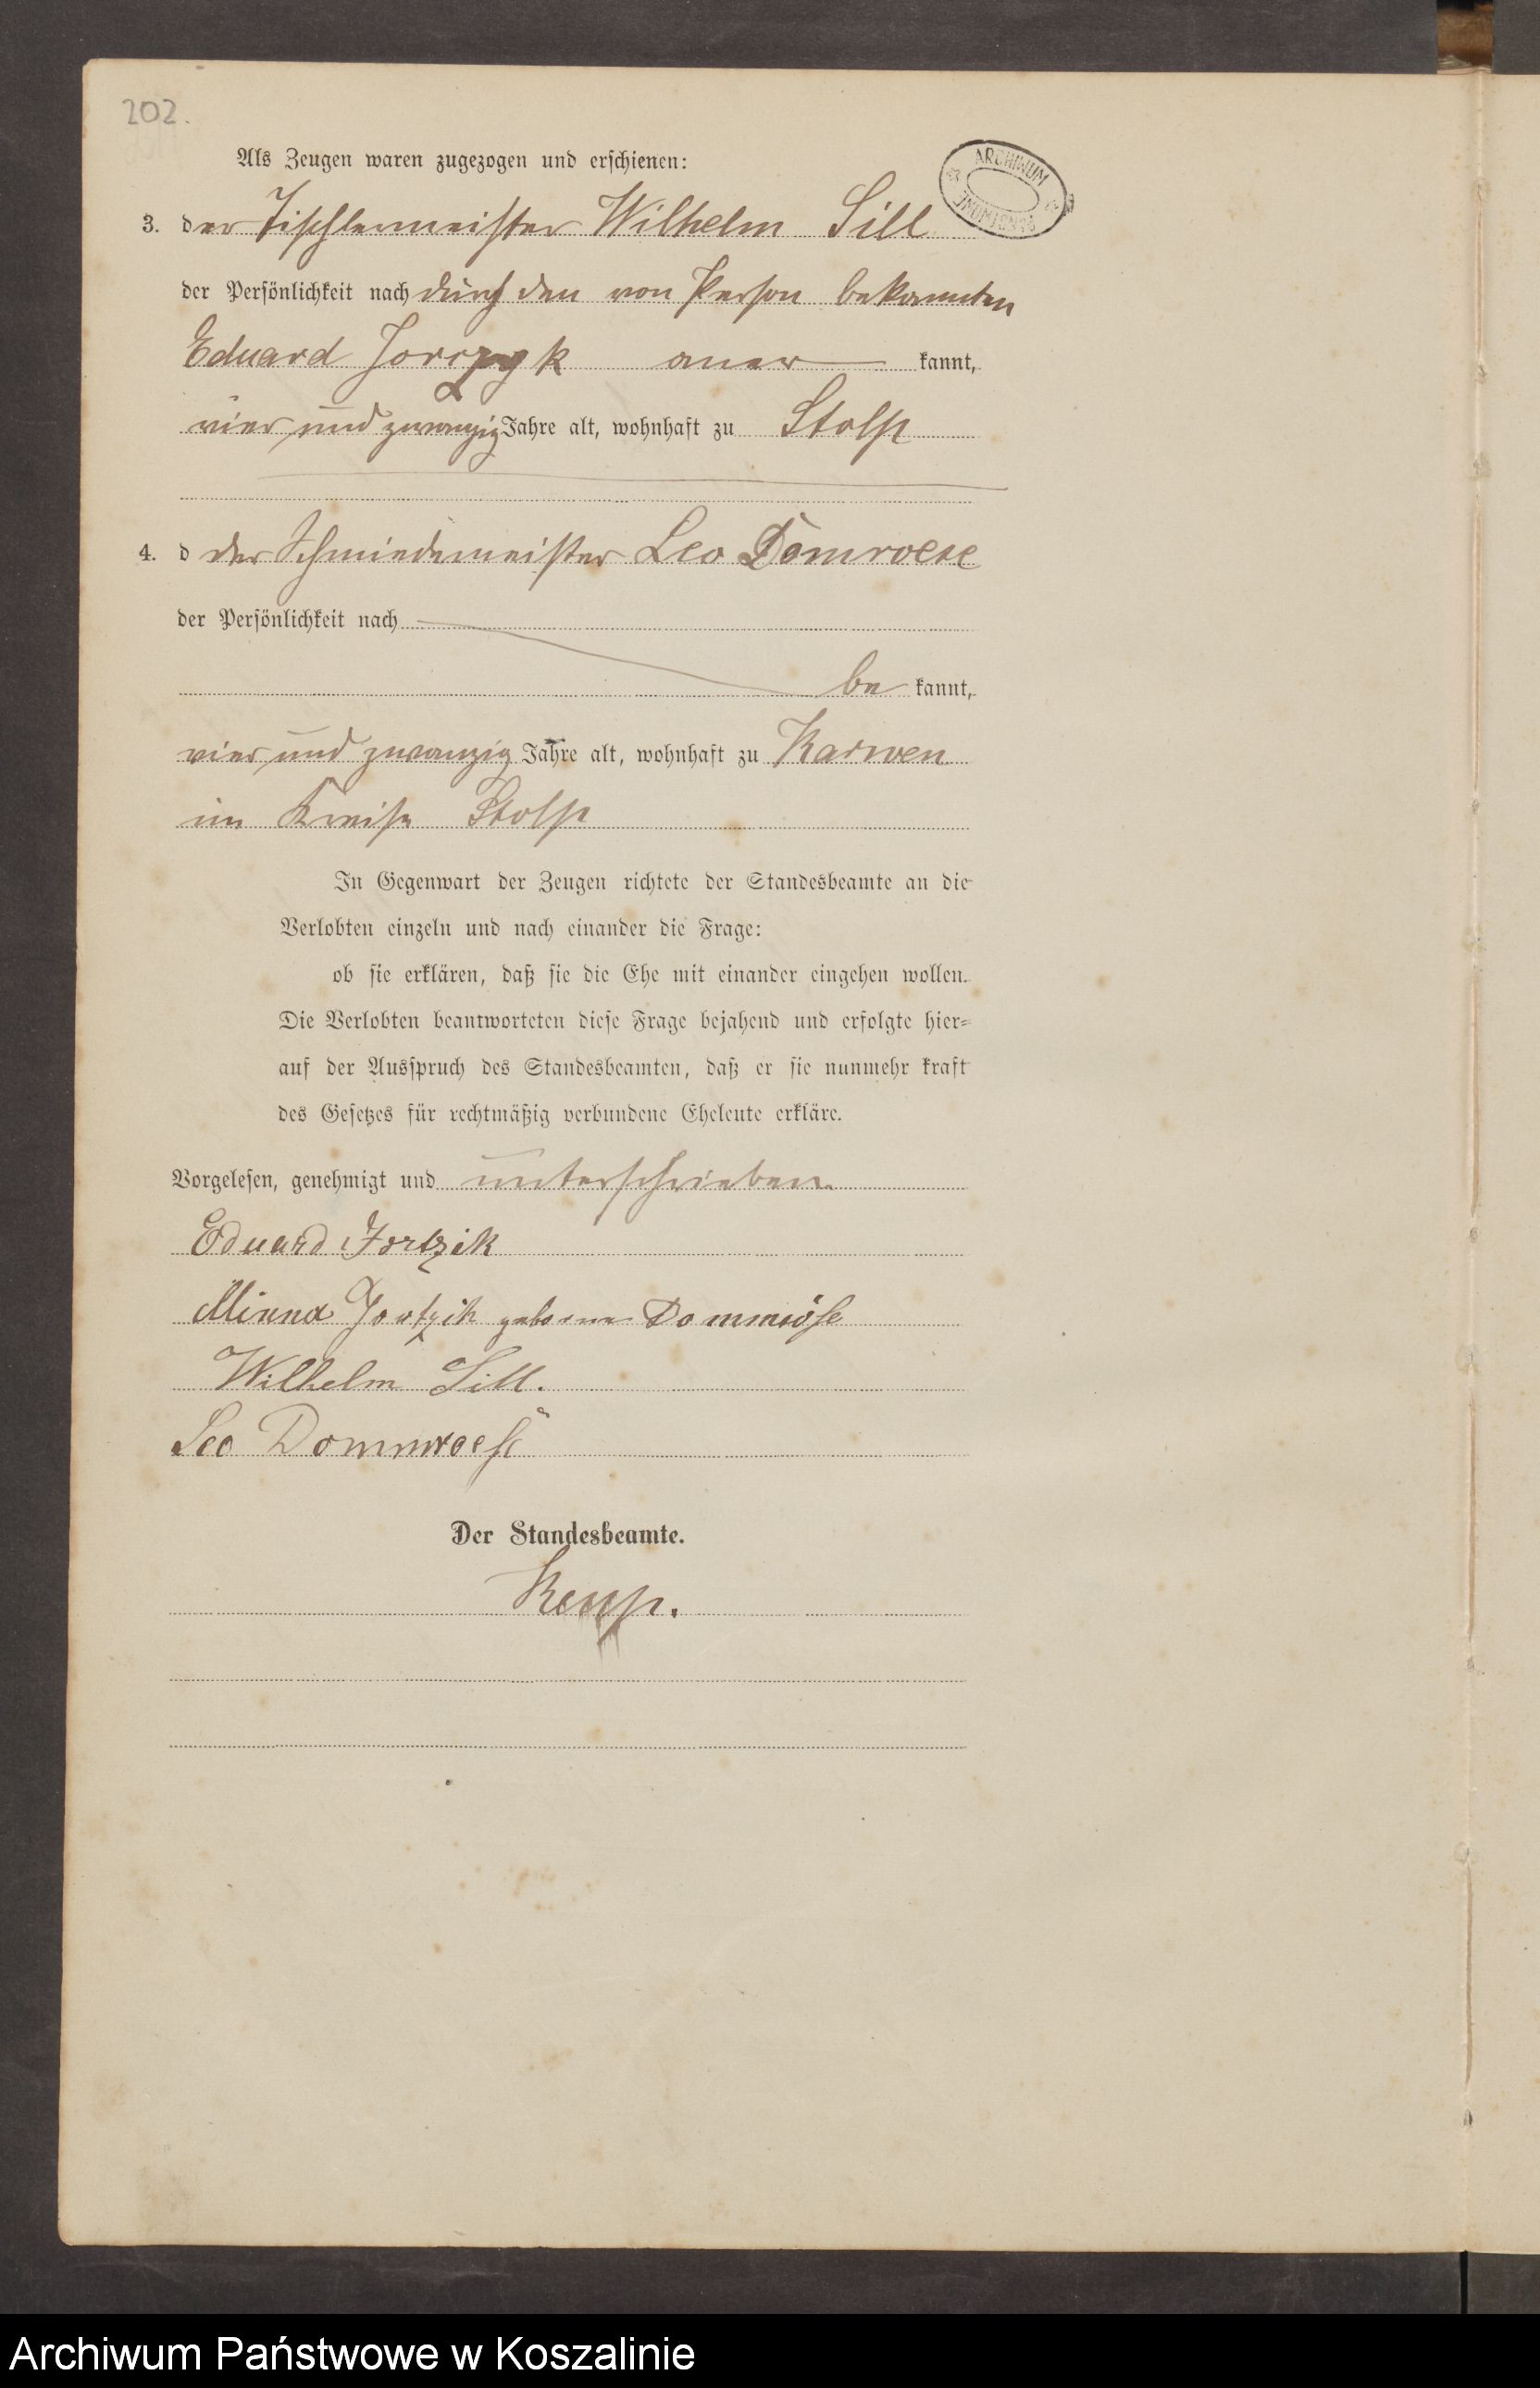 202.
Als Zeugen waren zugezogen und erschienen:
ARCHIWUM
3. der Tischlermeister Wilhelm Sill
der Persönlichkeit nach durch den von Person bekannten
Eduard Jorczyk aner kannt,
vier und zwanzig Jahre alt, wohnhaft zu Stolp
4. d der Schmiedemeister Leo Domroese
der Persönlichkeit nach
be kannt,
vier und zwanzig Jahre alt, wohnhaft zu Karwen
im Kreise Stolp
In Gegenwart der Zeugen richtete der Standesbeamte an die
Verlobten einzeln und nach einander die Frage:
ob sie erklären, daß sie die Ehe mit einander eingehen wollen.
Die Verlobten beantworteten diese Frage bejahend und erfolgte hier=
auf der Ausspruch des Standesbeamten, daß er sie nunmehr kraft
des Gesetzes für rechtmäßig verbundene Eheleute erkläre.
Vorgelesen, genehmigt und unterschrieben.
Eduard Jortzik
Minna Jortzik geborene Dommröse
Wilhelm Sill.
Leo Dommroese
Der Standesbeamte.
Archiwum Państwowe w Koszalinie